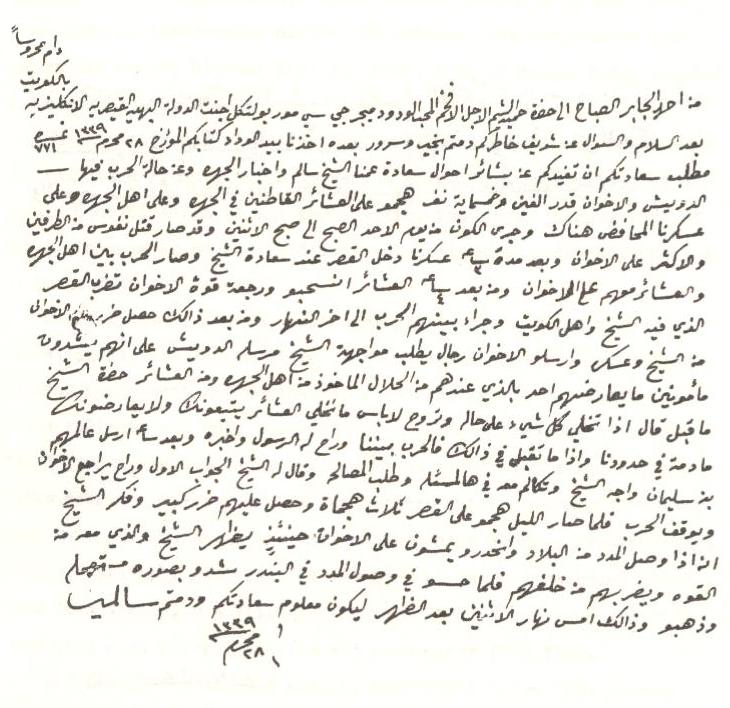 دام محروساً
بالكويت
من احمد الجابر الصباح الى حضرة حميد الشيم الاجل الافخم المحب الودود ميجر جي سي مور بولتكل اجنت الدولة البهية القيصرية الانكليزية
بعد السلام والسوال عن شريف خاطركم دمتم بخير وسرور بعده اخذنا بيد الوداد كتابكم المؤرخ ٢٨ محرم ١٣٣٩ نمره ٧٧١
مطلب سعادتكم ان تفيدكم عن بشائر احوال سعادة عمنا الشيخ سالم واخبار الجهره وعن حالة الحرب فيها
الدويش والاخوان قدر الفين وخمسماية نفر هجمو على العشائر القاطنين في الجهره وعلى اهل الجهره وعلى
عسكرنا المحافض هناك وجرى الكون من يوم الاحد الصبح الى صبح الاثنين وقد صار قتل نفوس من الطرفين
والاكثر على الاخوان وبعد مدة ٣ ساعه عسكرنا دخل القصر عند سعادة الشيخ وصار الحرب بين اهل الجهره
والعشائر معهم على الاخوان ومن بعد ٤ ساعه العشائر انسحبو ورجعة قوة الاخوان تضرب القصر
الذي فيه الشيخ واهل الكويت وجرا بينهم الحرب الى اخر النهار ومن بعد ذالك حصل ضرر الاخوان
من الشيخ وعسكره وارسلو الاخوان رجال يطلب مواجهة الشيخ مرسله الدويش على انهم ينشدون
مأمونين ما يعارضهم احد بالذي عندهم من الحلال الماخوذ من اهل الجهره ومن العشائر حضرة الشيخ
ما قبل قال اذا تخلي كل شيء على حاله وتروح لاباس ما نخلي العشائر يتبعونك ولا يعارضونك
مادمة في حدودنا واذا ما تقبل في ذالك فالحرب بيننا وراح له الرسول واخبره وبعد ساعه ارسل عالمهم
بن سليمان واجه الشيخ وتكالم معه في هالمسئله وطلب المصالحه وقال له الشيخ الجواب الاول وراح يراجع الاخوان
ويوقف الحرب فلما صار الليل هجمو على القصر ثلاث هجماة وحصل عليهم ضرر كبير وفكر الشيخ
انه اذا وصل المدد من البلاد وانحدرو يمشون على الاخوان حينئذٍ يظهر الشيخ والذي معه من
القوه ويضربهم من خلفهم فلما حسو في وصول المدد في البندر شدو بصوره مستعجله
وذهبو وذالك امس نهار الاثنين بعد الظهر ليكون معلوم سعادتكم ودمتم سالمين
١٣٣٩
٢٨ محرم